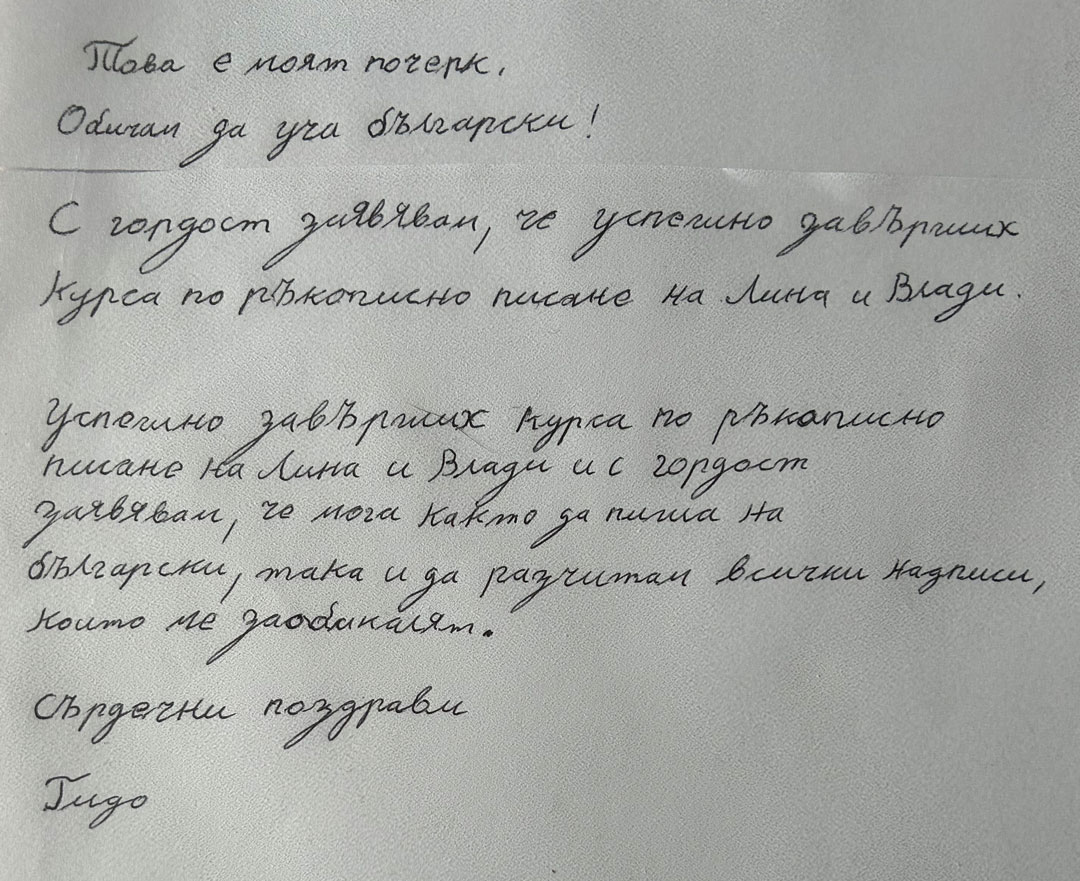 Това е моят почерк.
Обичам да уча български!
С гордост заявявам, че успешно завърших
курса по ръкописно писане на Лина и Влади.
Успешно завърших курса по ръкописно
писане на Лина и Влади и с гордост
заявявам, че мога както да пиша на
български, така и да разчитам всички надписи,
които ме заобикалят.
Сърдечни поздрави
Гидо